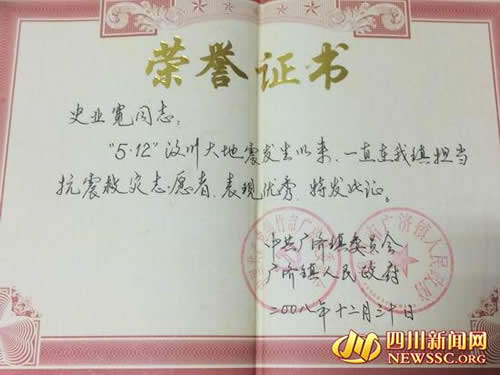 荣誉证书
史业宽同志：
"5·12"汶川大地震发生以来，一直在我镇担当
抗震救灾志愿者，表现优秀，特发此证。
中共广济镇委员会
广济镇人民政府
二00八年十二月三十日
四川新闻网
NEWSSC.ORG